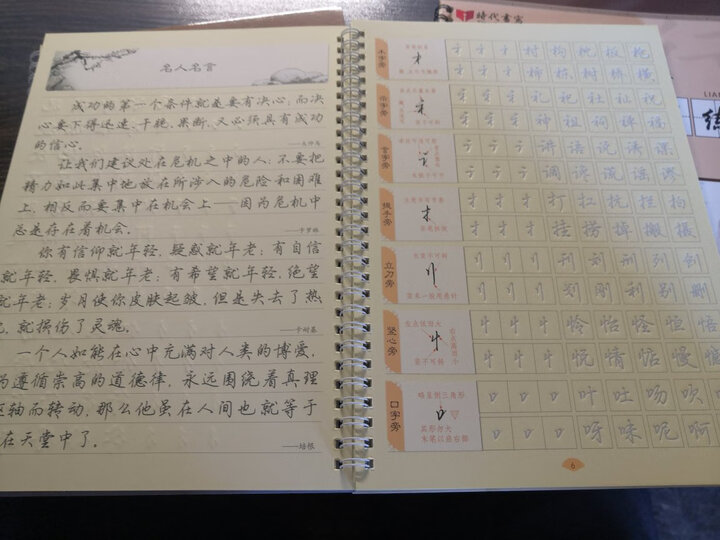 名人名言
成功的第一个条件就是要有决心；而决
心要下得迅速、干脆、果断、又必须具有成功
的信心。
——大仲马
让我们建议处在危机之中的人：不要把
精力如此集中地放在所涉入的危险和困难
上，相反而要集中在机会上——因为危机中
总是存在着机会。
——卡罗琳
你有信仰就年轻，疑惑就年老；有自信
就年轻，畏惧就年老；有希望就年轻，绝望
就年老；岁月使你皮肤起皱，但是失去了热
就损伤了灵魂。
——卡耐基
一个人如能在心中充满对人类的博爱，
为遵循崇高的道德律，永远围绕着真理
枢轴而转动，那么他虽在人间也就等于
在天堂中了。
——培根
时代书写
LIAN
练
木字旁
村 构 枕 板 枪
柿 栋 树 横
示字旁
礼 祀 社 祉 祝
神 祖 祠
言字旁
讲 语 说 读 课
调 谎 谣 谬
提手旁
打 扛 抗 担 拍
挂 捞 掉 搬 摄
立刀旁
刊 刘 刺 列 创
划 刚 利 别 删
竖心旁
左点低而大
右点高而小
竖不可斜
怜 怡 怪 恒 悟
悦 情 惦 慢
口字旁
略呈倒三角形
其形勿大
末笔以启右部
叶 吐 吻 吹
呀 味 呢 啊
6